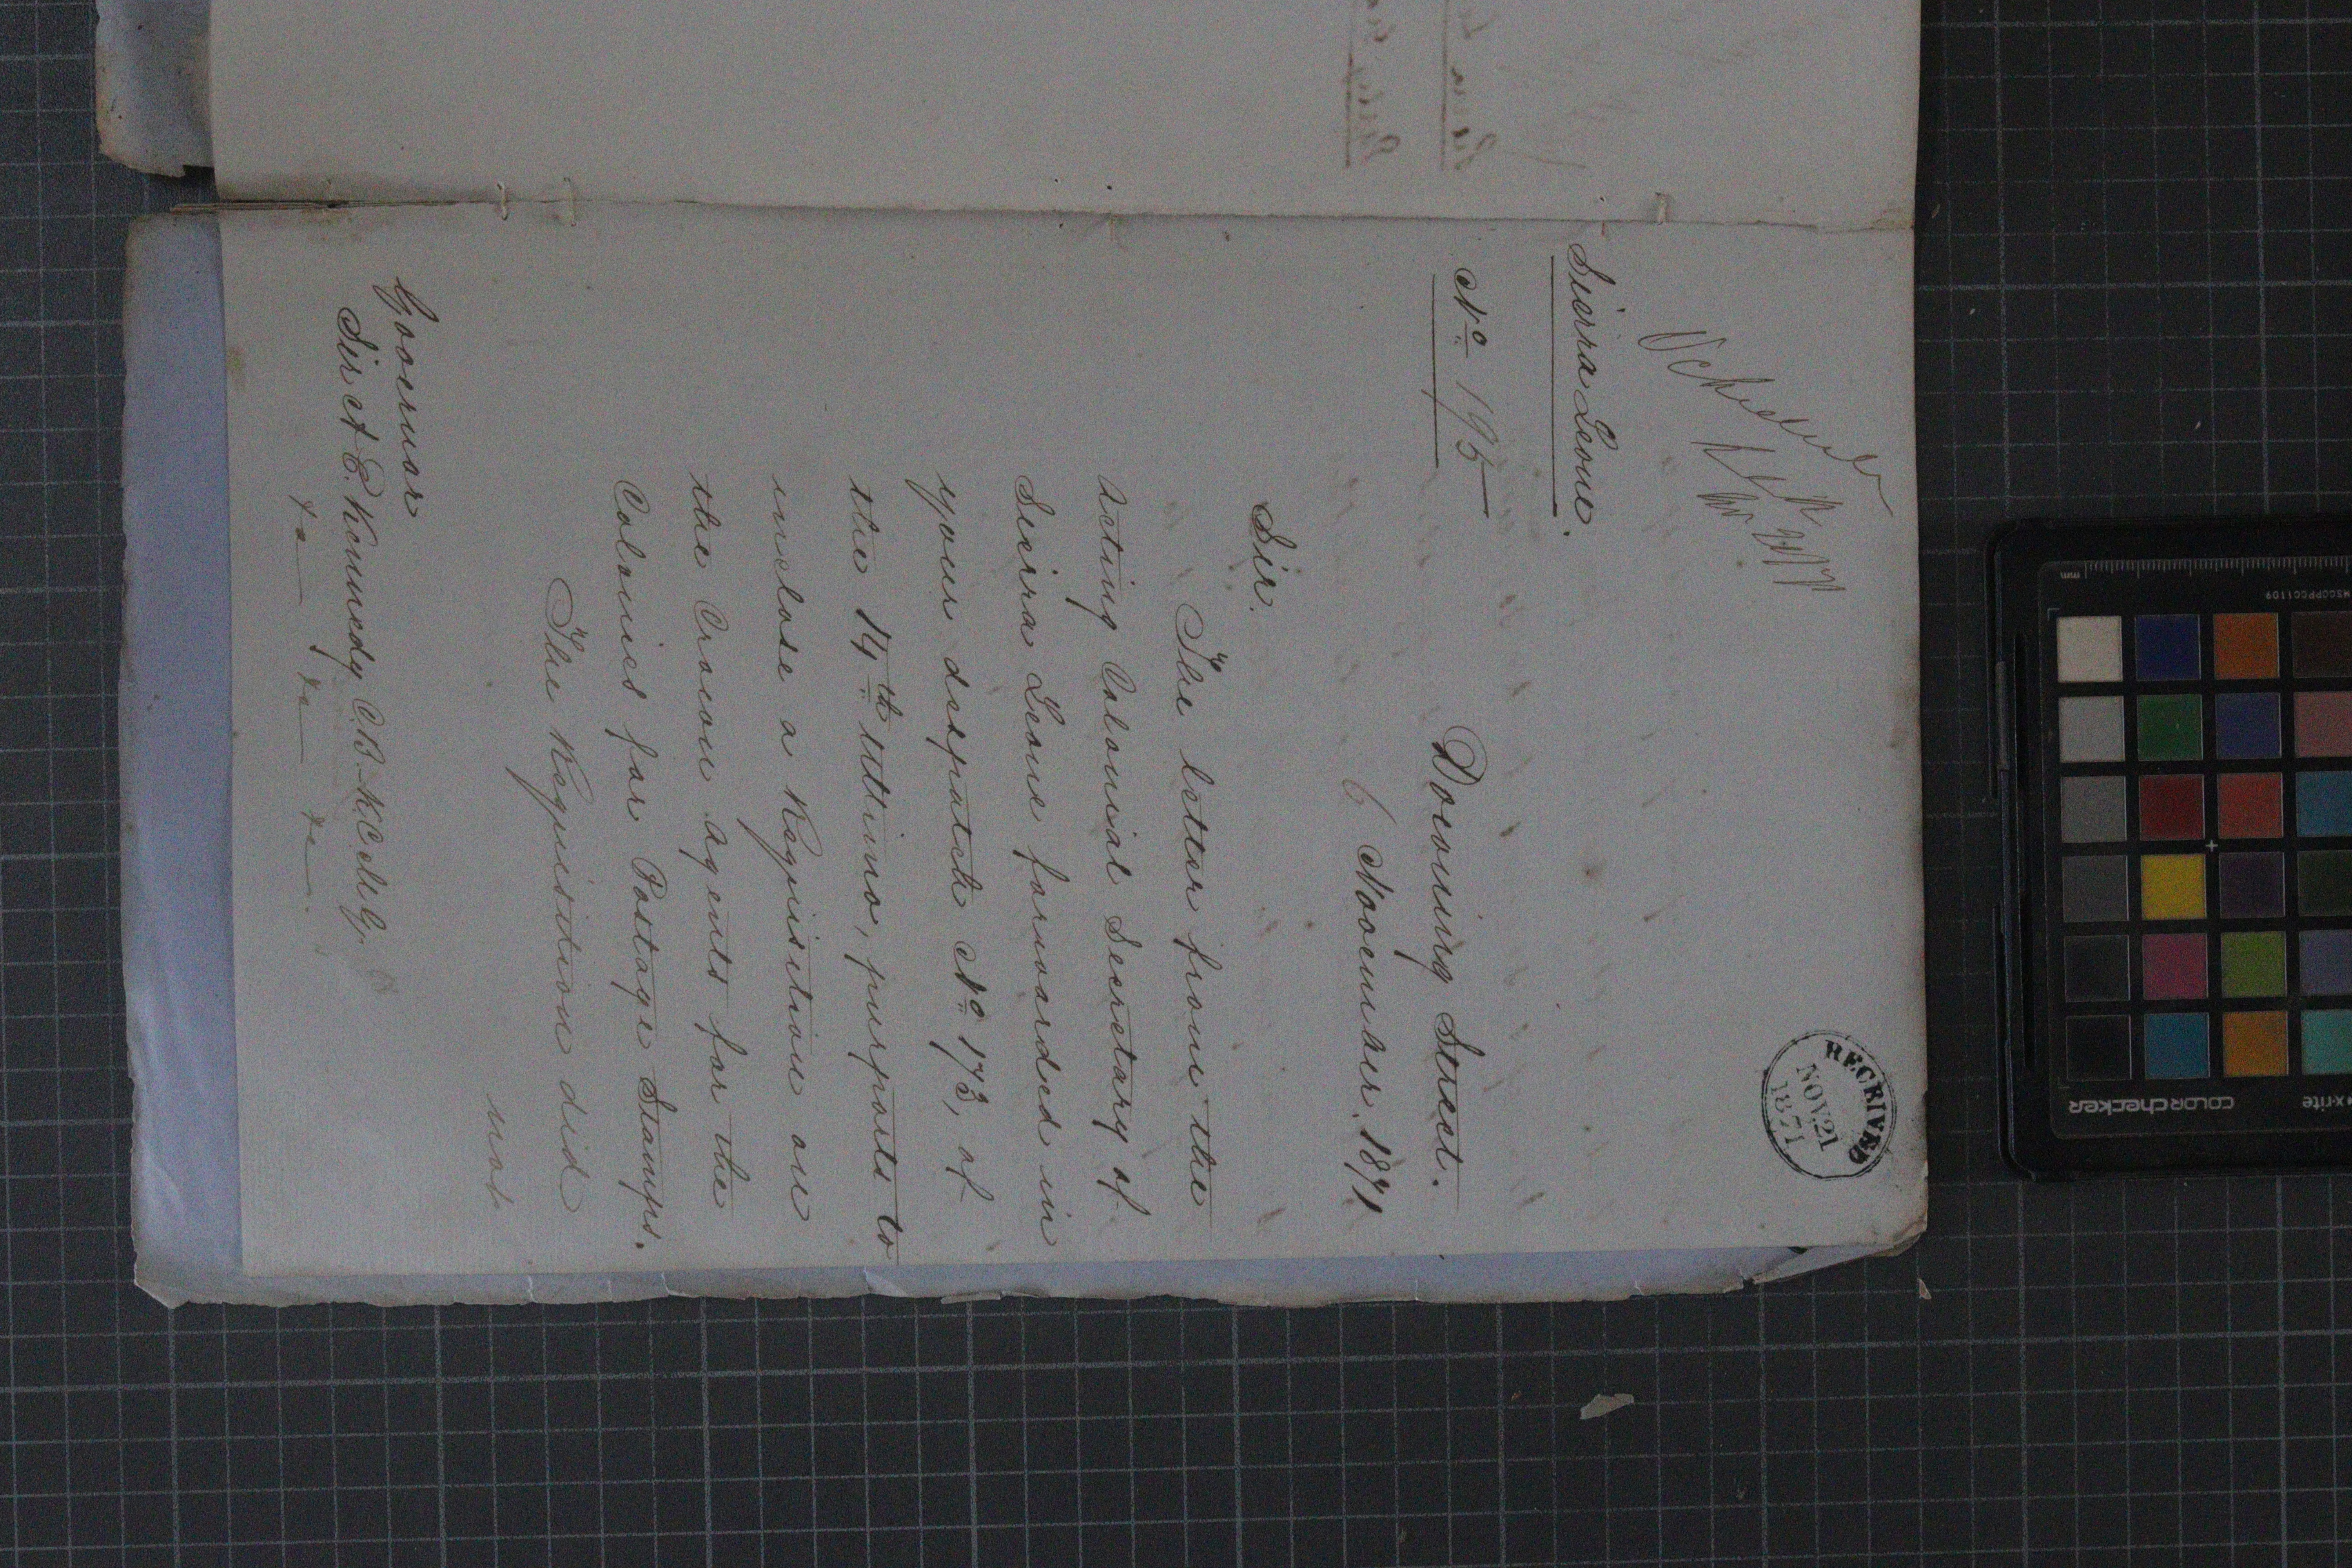 RECEIVED
NOV. 21
1871
Sierra Leone.
No 195
Downing Street.
6 November, 1871
Sir,
The letter from the
Acting Colonial Secretary of
Sierra Leone forwarded in
your despatch No 173, of
the 14th ultimo, purports to
inclose a Requisition on
the Crown Agents for the
Colonies for Postage Stamps.
The Requisition did
not
Governor
Sir A E. Kennedy C.B. K.C.M.G.
&c &c &c.
mm
colorchecker
x-rite